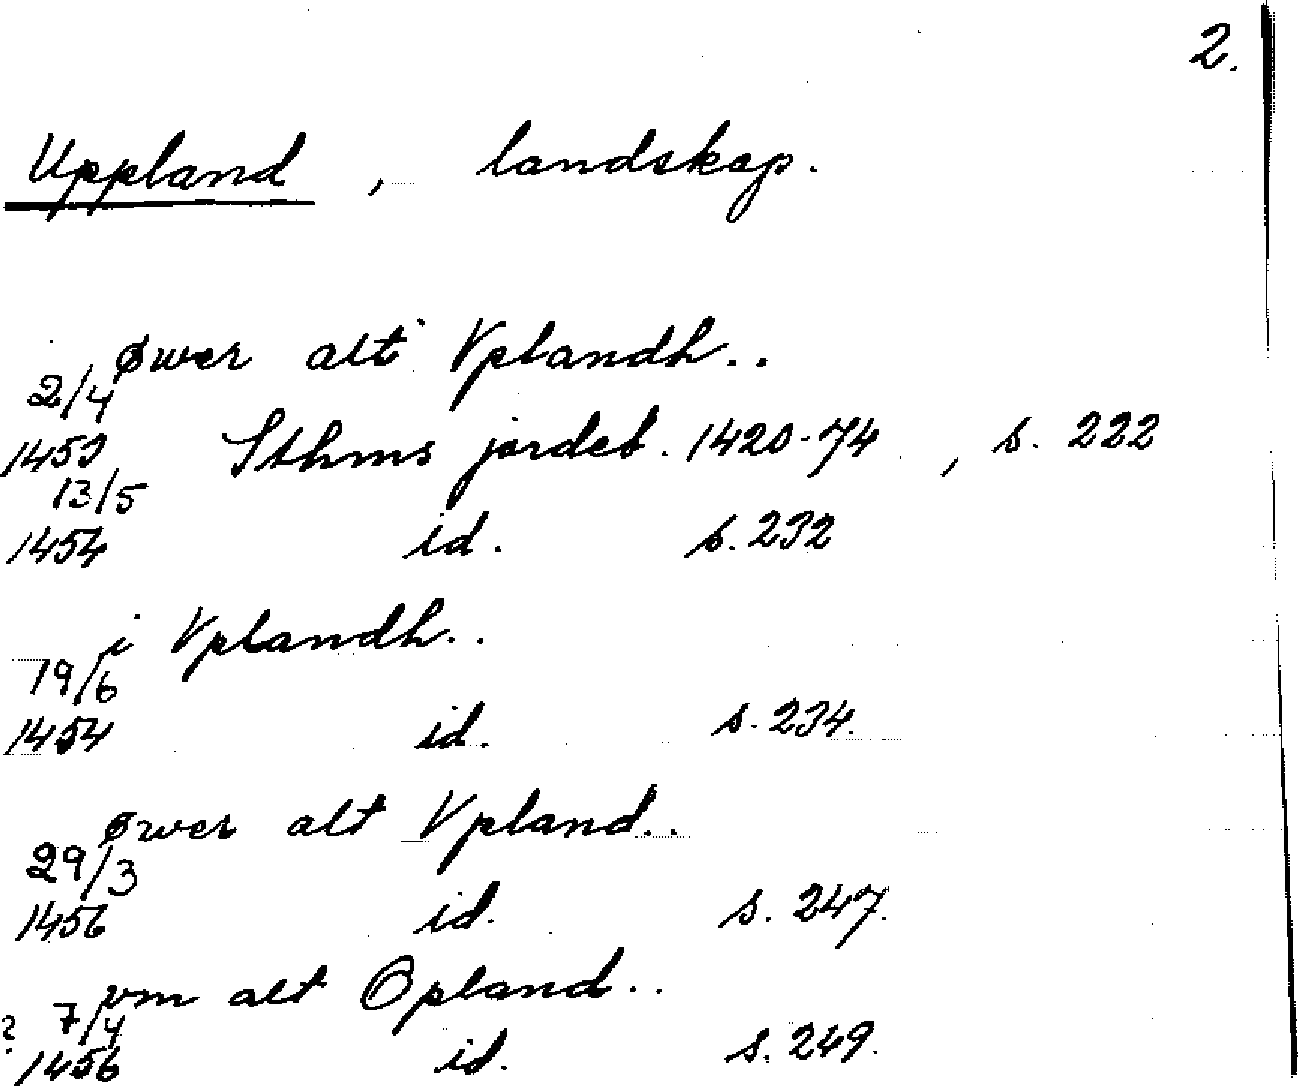 2.
Uppland, landskap.
øwer alt Vplandh..
2/4
1453 Sthms jordeb. 1420-74, s. 222
13/5
1454 id. s. 232
i Vplandh..
19/6
1454 id. s. 234.
øwer alt Vpland..
29/3
1456 id. s. 247.
vm alt Opland..
? 7/4
1456 id. s. 249.